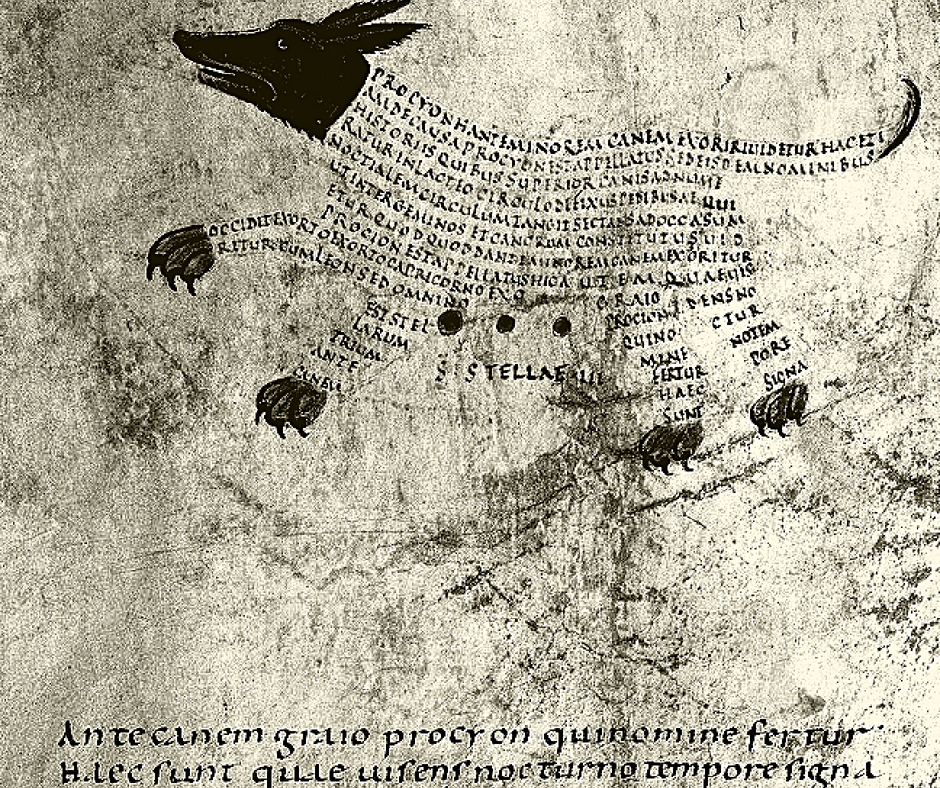 PROCYON HANTEMINOREM CANEM EXORIRIUIDETUR HAC ETI
AM DE CAUSA PROCYON EST APPELLATUS SED EISDEM NOMINIBUS
HISTORIIS QUIBUS SUPERIOR CANIS ADNUME
RATUR IN LACTEO CIRCULO DEFIXUS PEDIBUS AE QUI
NOCTIALEM CIRCULUM TANGIT SPECTAS AD OCCASUM
UT INTER GEMINOS ET CANCRUM CONSTITUTUS UID
ETUR QUOD QUOD ANTE MINOREM CANEM EXORITUR
PROCION EST APPELLATUS HIC A UTEM QUAE UIS
OCCIDIT EXORTO EXORTO CAPRICORNO EXO
RITUR CUM LEON SED OMNINO
EST STEL
LARUM
TRIUM
ANTE
CANEM
GRAIO
PROCION
QUINO
MINE
FERTUR
HAEC
SUNT
DENS NO
CTUR
NOTEM
PORE
SIGNA
S S TELLAE III
Ante canem graio procyon quinomine fertur
Haec sunt quae uisens nocturno tempore signa